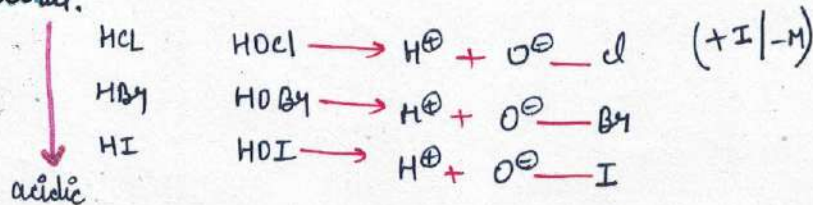 HCL HOCl → H⊕ + O⊖ — Cl (+I|-M)
HBr HOBr → H⊕ + O⊖ — Br
HI HOI → H⊕ + O⊖ — I
acidic